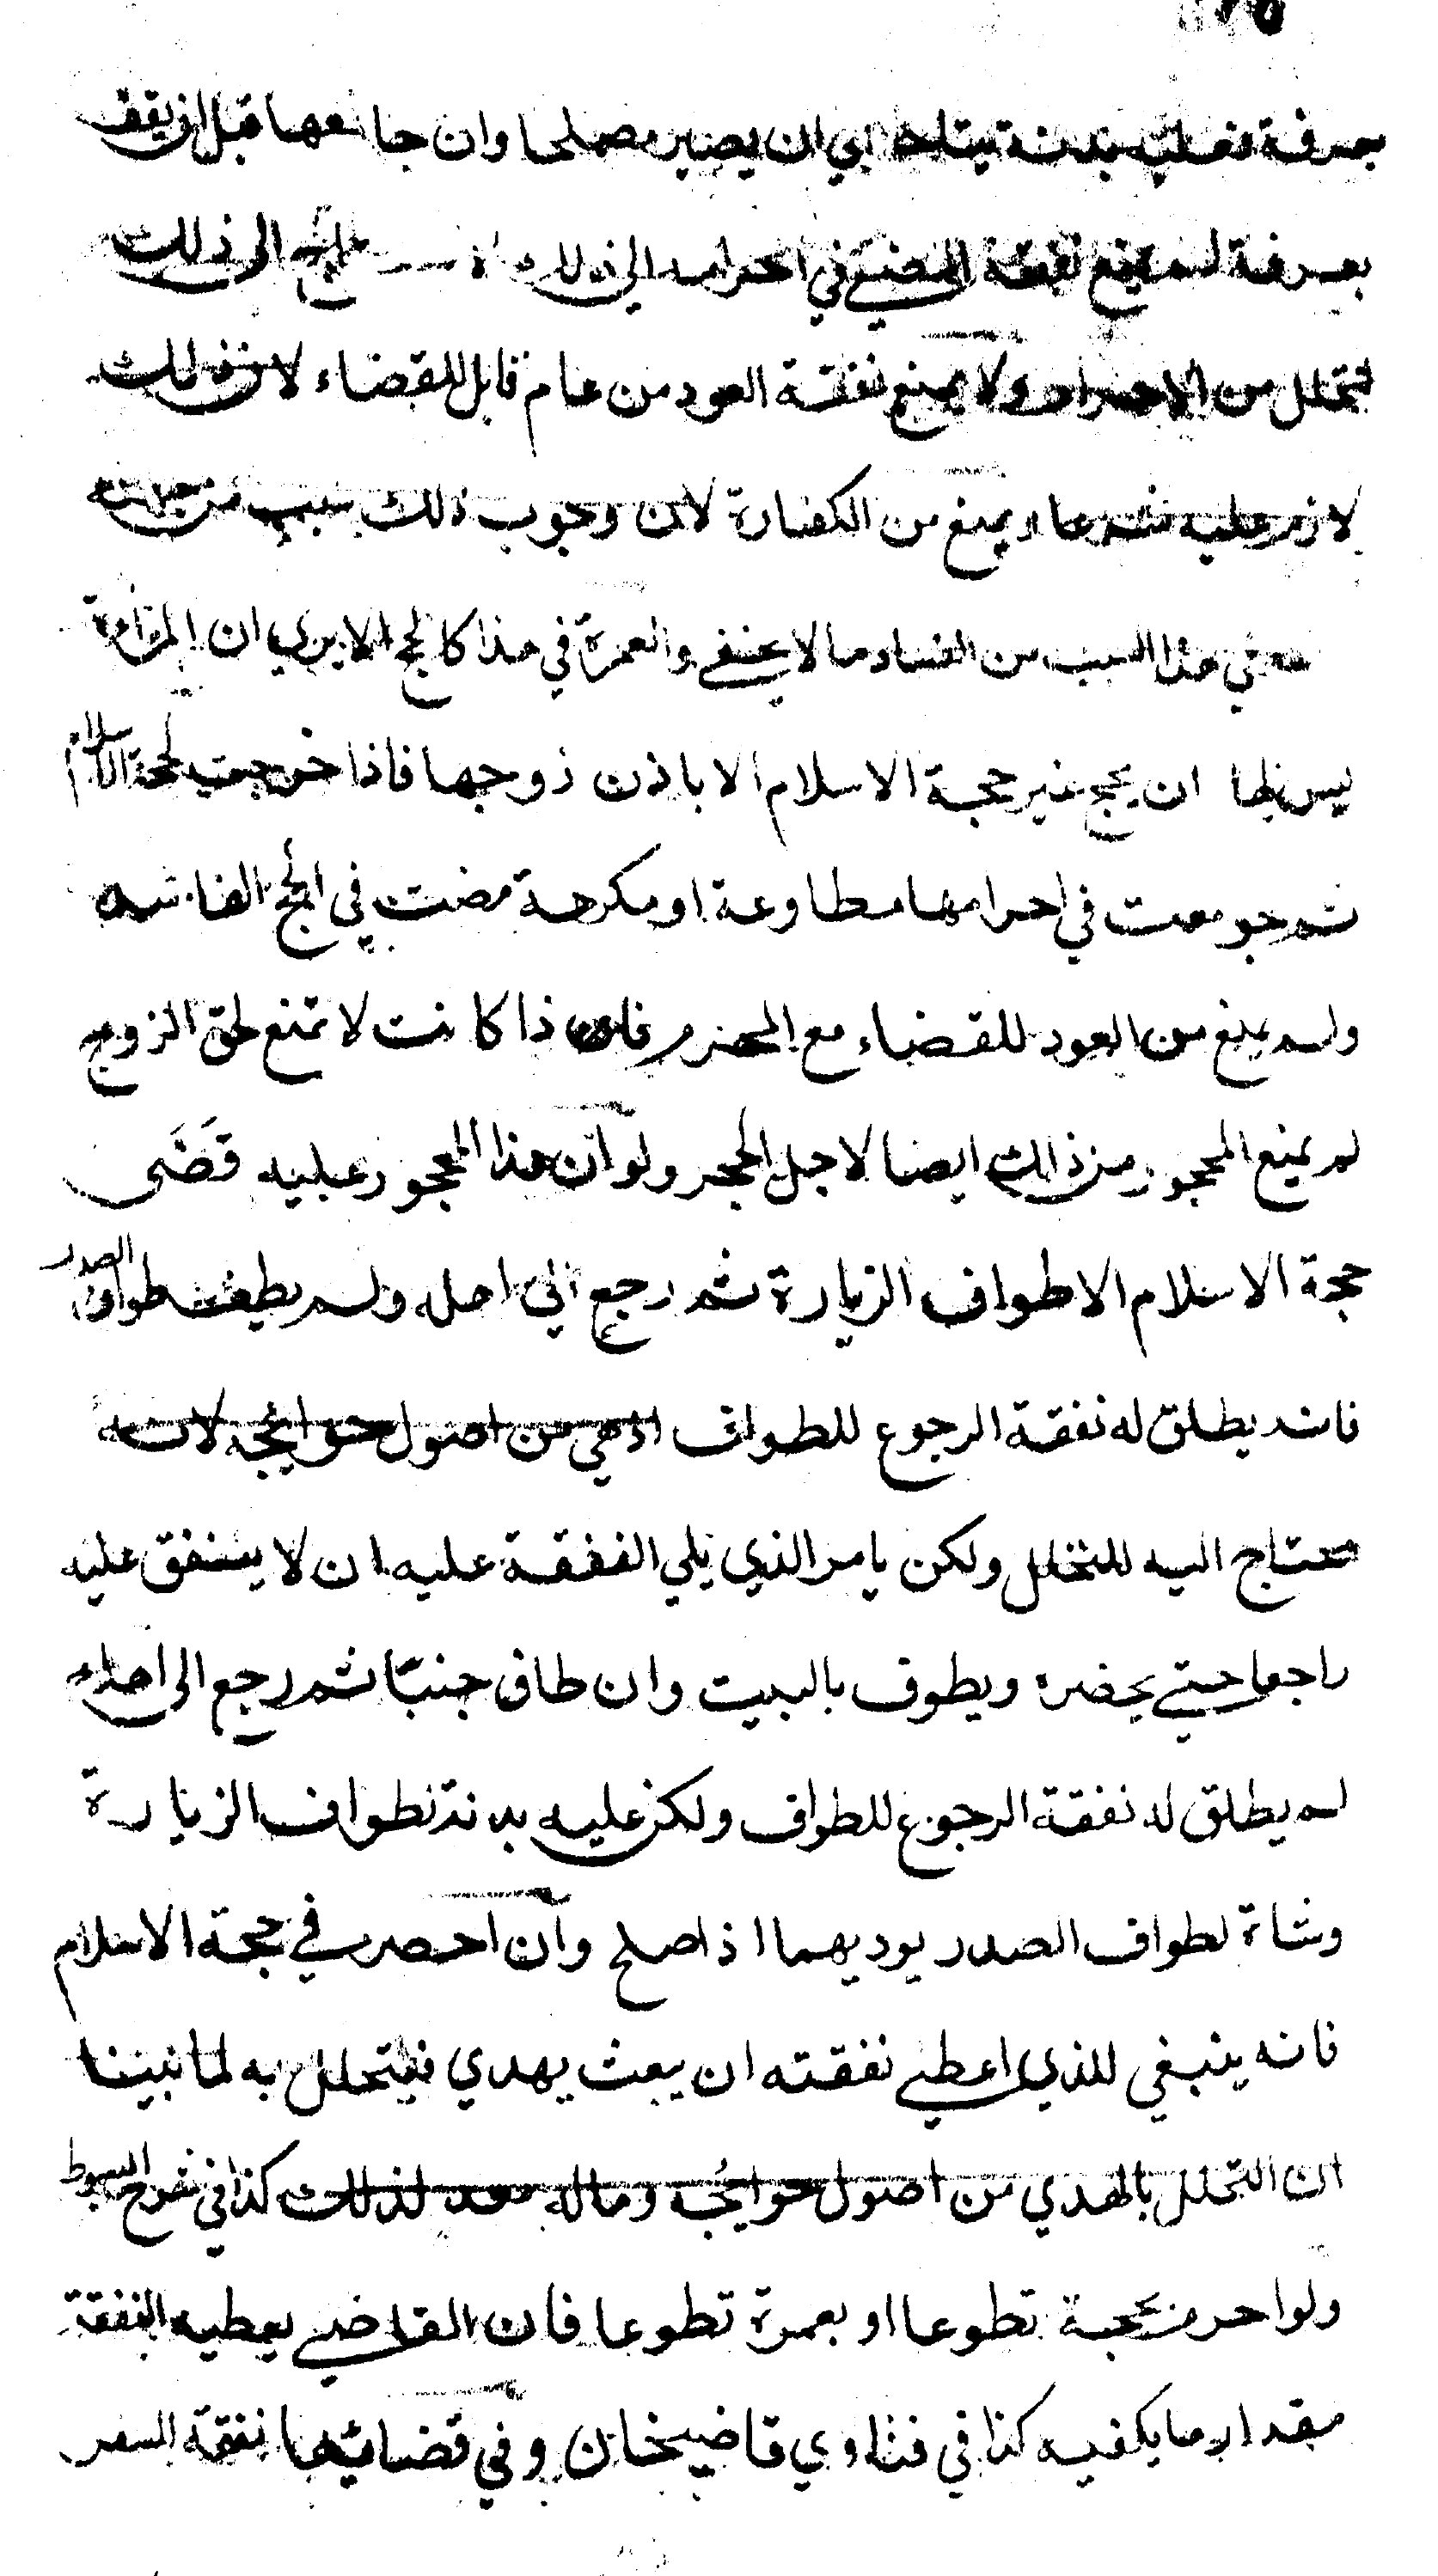 بعرفة فعليه بدنة يتاخر الي ان يصير مصلحا وان جامعها قبل ان يقف
بعرفة لم يمنع نفقة المضي في احرامه الي ذلك الى ذلك
للتحلل من الاحرام ولا يمنع نفقة العود من عام قابل للقضاء لان ذلك
لازم عليه شرعا ويمنع من الكفارة لان وجوب ذلك بسبب من جهته
معني هذا السبب من الفساد ما لا يخفي والعمرة في هذا كالحج الا يري ان المراة
ليس لها ان يحج غير حجة الاسلام الا باذن زوجها فاذا خرجت لحجة الاسلام
ثم جومعت في احرامها مطاوعة او مكرهة مضت في الحج الفاسد
ولم يمنع من العود للقضاء مع المحرم فان ذا كانت لا تمنع لحق الزوج
لم يمنع المحجور من ذلك ايضا لاجل الحجر ولو ان هذا المحجور عليه قَضَى
حجة الاسلام الا طواف الزيارة ثم رجع الي اهله ولم يطف طواف الصدر
فانه يطلق له نفقة الرجوع للطواف اذ هي من اصول حوايجه لانه
محتاج اليه للتحلل ولكن يامر الذي يلي النفقة عليه ان لا ينفق عليه
راجعا حتي يحضره ويطوف بالبيت وان طاف جنبًا ثم رجع الى اهله
لم يطلق له نفقة الرجوع للطواف ولكن عليه بدنة لطواف الزيارة
وشاة لطواف الصدر يوديهما اذا صلح وان احصر في حجة الاسلام
فانه ينبغي للذي اعطي نفقته ان يبعث بهدي فيتحلل به لما بينا
ان التحلل بالهدي من اصول حوايجه وماله معد لذلك كذا في شرح المبسوط
ولو احرم بحجة تطوعا او بعمرة تطوعا فان القاضي يعطيه النفقة
مقدار ما يكفيه كذا في فتاوي قاضيخان وفي قضائهما نفقة السفر